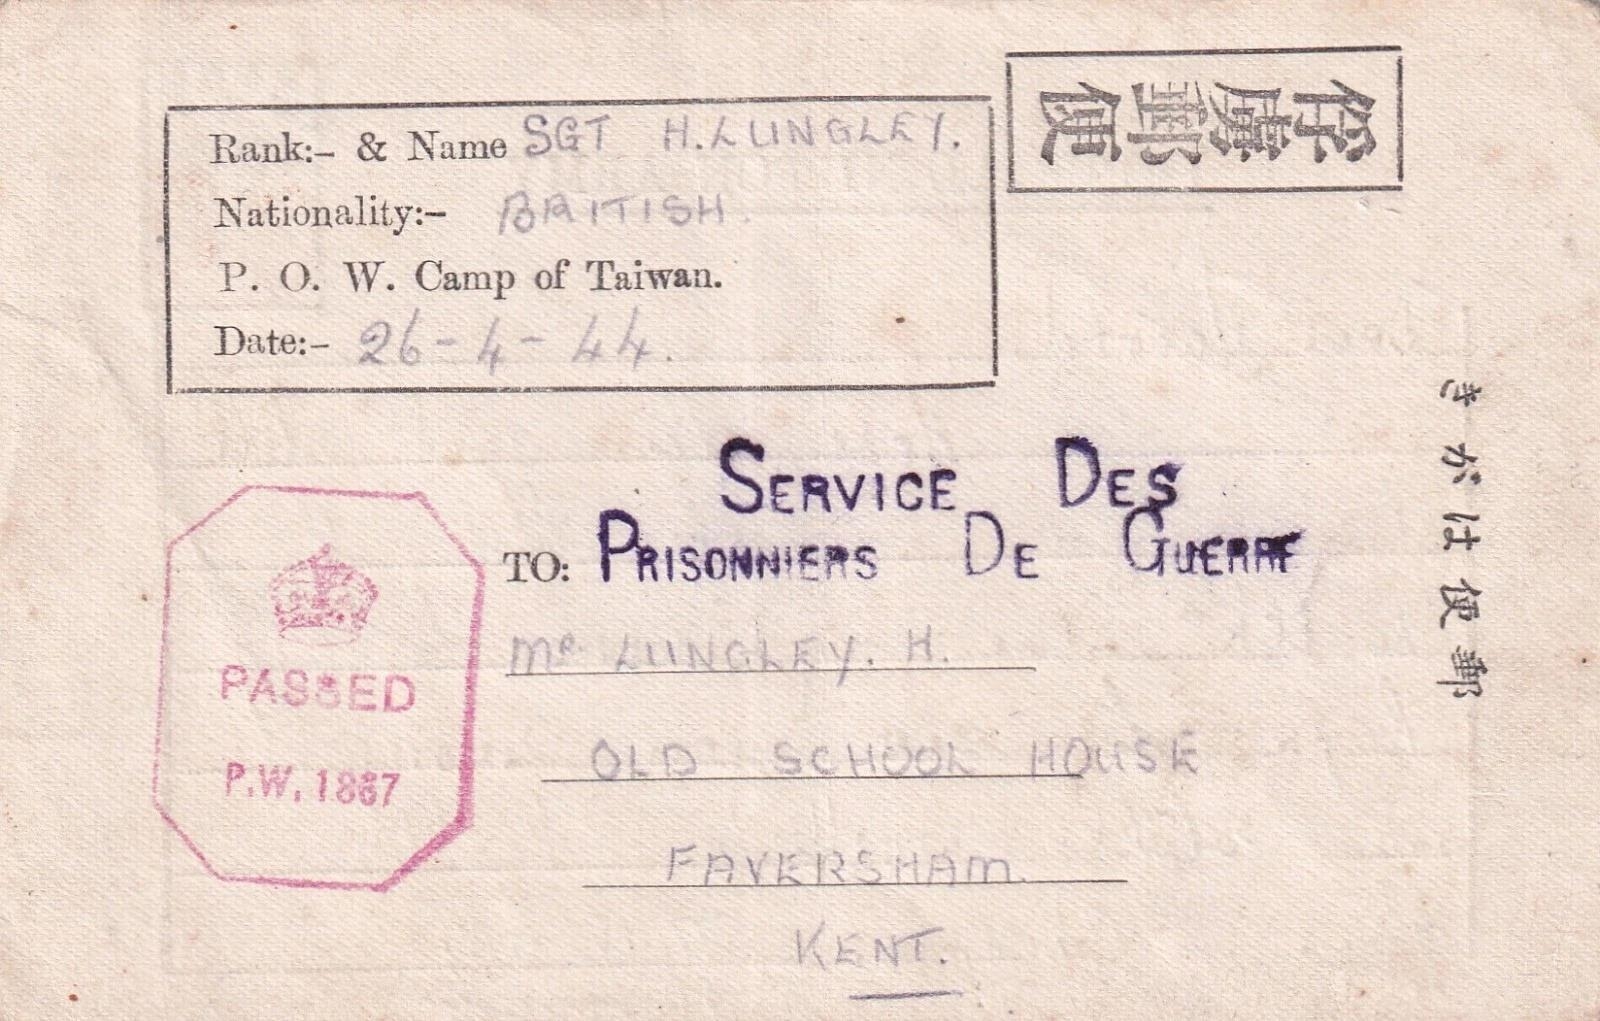 俘虜郵便
Rank:- & Name SGT H. LUNGLEY.
Nationality:- BRITISH.
P. O. W. Camp of Taiwan.
Date:- 26-4-44.
郵便はがき
SERVICE DES
TO: PRISONNIERS DE GUERRE
Mr LUNGLEY. H.
OLD SCHOOL HOUSE
FAVERSHAM.
KENT.
PASSED
P.W. 1867